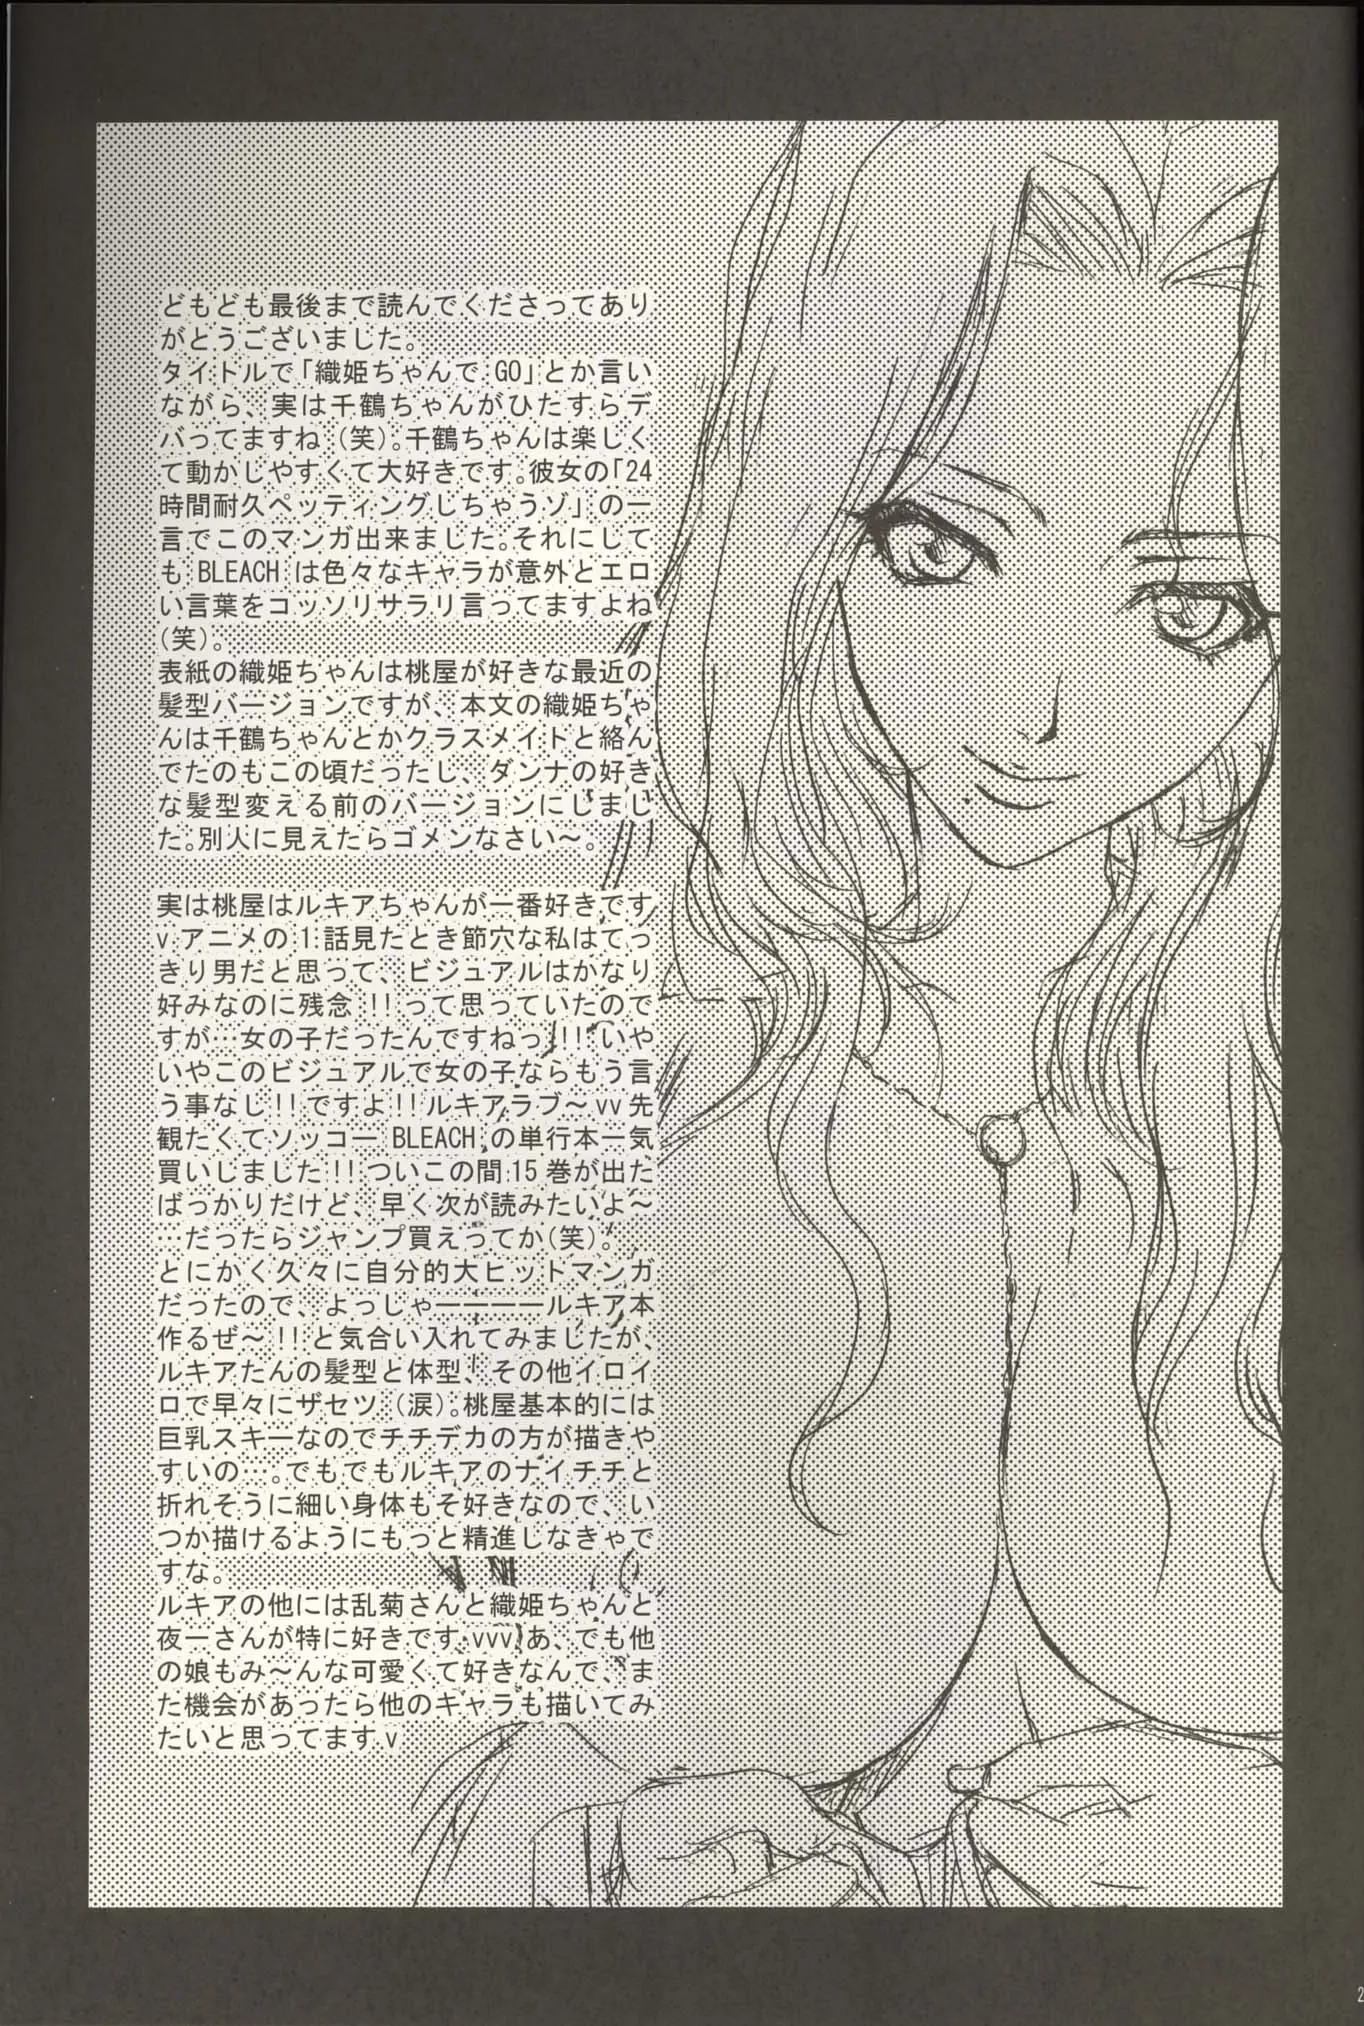 どもども最後まで読んでくださってあり
がとうございました。
タイトルで「織姫ちゃんで GO」とか言い
ながら、実は千鶴ちゃんがひたすらデ
バってますね（笑）。千鶴ちゃんは楽しく
て動かしやすくて大好きです。彼女の「24
時間耐久ペッティングしちゃうゾ」の一
言でこのマンガ出来ました。それにして
も BLEACH は色々なキャラが意外とエロ
い言葉をコッソリサラリ言ってますよね
（笑）。
表紙の織姫ちゃんは桃屋が好きな最近の
髪型バージョンですが、本文の織姫ちゃ
んは千鶴ちゃんとかクラスメイトと絡ん
でたのもこの頃だったし、ダンナの好き
な髪型変える前のバージョンにしまし
た。別人に見えたらゴメンなさい～。
実は桃屋はルキアちゃんが一番好きです
v アニメの 1 話見たとき節穴な私はてっ
きり男だと思って、ビジュアルはかなり
好みなのに残念！！って思っていたので
すが…女の子だったんですねっ！！！いや
いやこのビジュアルで女の子ならもう言
う事なし！！ですよ！！ルキアラブ～vv 先
観たくてソッコー BLEACH の単行本一気
買いしました！！ついこの間 15 巻が出た
ばっかりだけど、早く次が読みたいよ～
…だったらジャンプ買えってか（笑）。
とにかく久々に自分的大ヒットマンガ
だったので、よっしゃーーーールキア本
作るぜ～！！と気合い入れてみましたが、
ルキアたんの髪型と体型、その他イロイ
ロで早々にザセツ（涙）。桃屋基本的には
巨乳スキーなのでチチデカの方が描きや
すいの…。でもでもルキアのナイチチと
折れそうに細い身体もそ好きなので、い
つか描けるようにもっと精進しなきゃで
すな。
ルキアの他には乱菊さんと織姫ちゃんと
夜一さんが特に好きです vvv あ、でも他
の娘もみ～んな可愛くて好きなんで、ま
た機会があったら他のキャラも描いてみ
たいと思ってます v
2